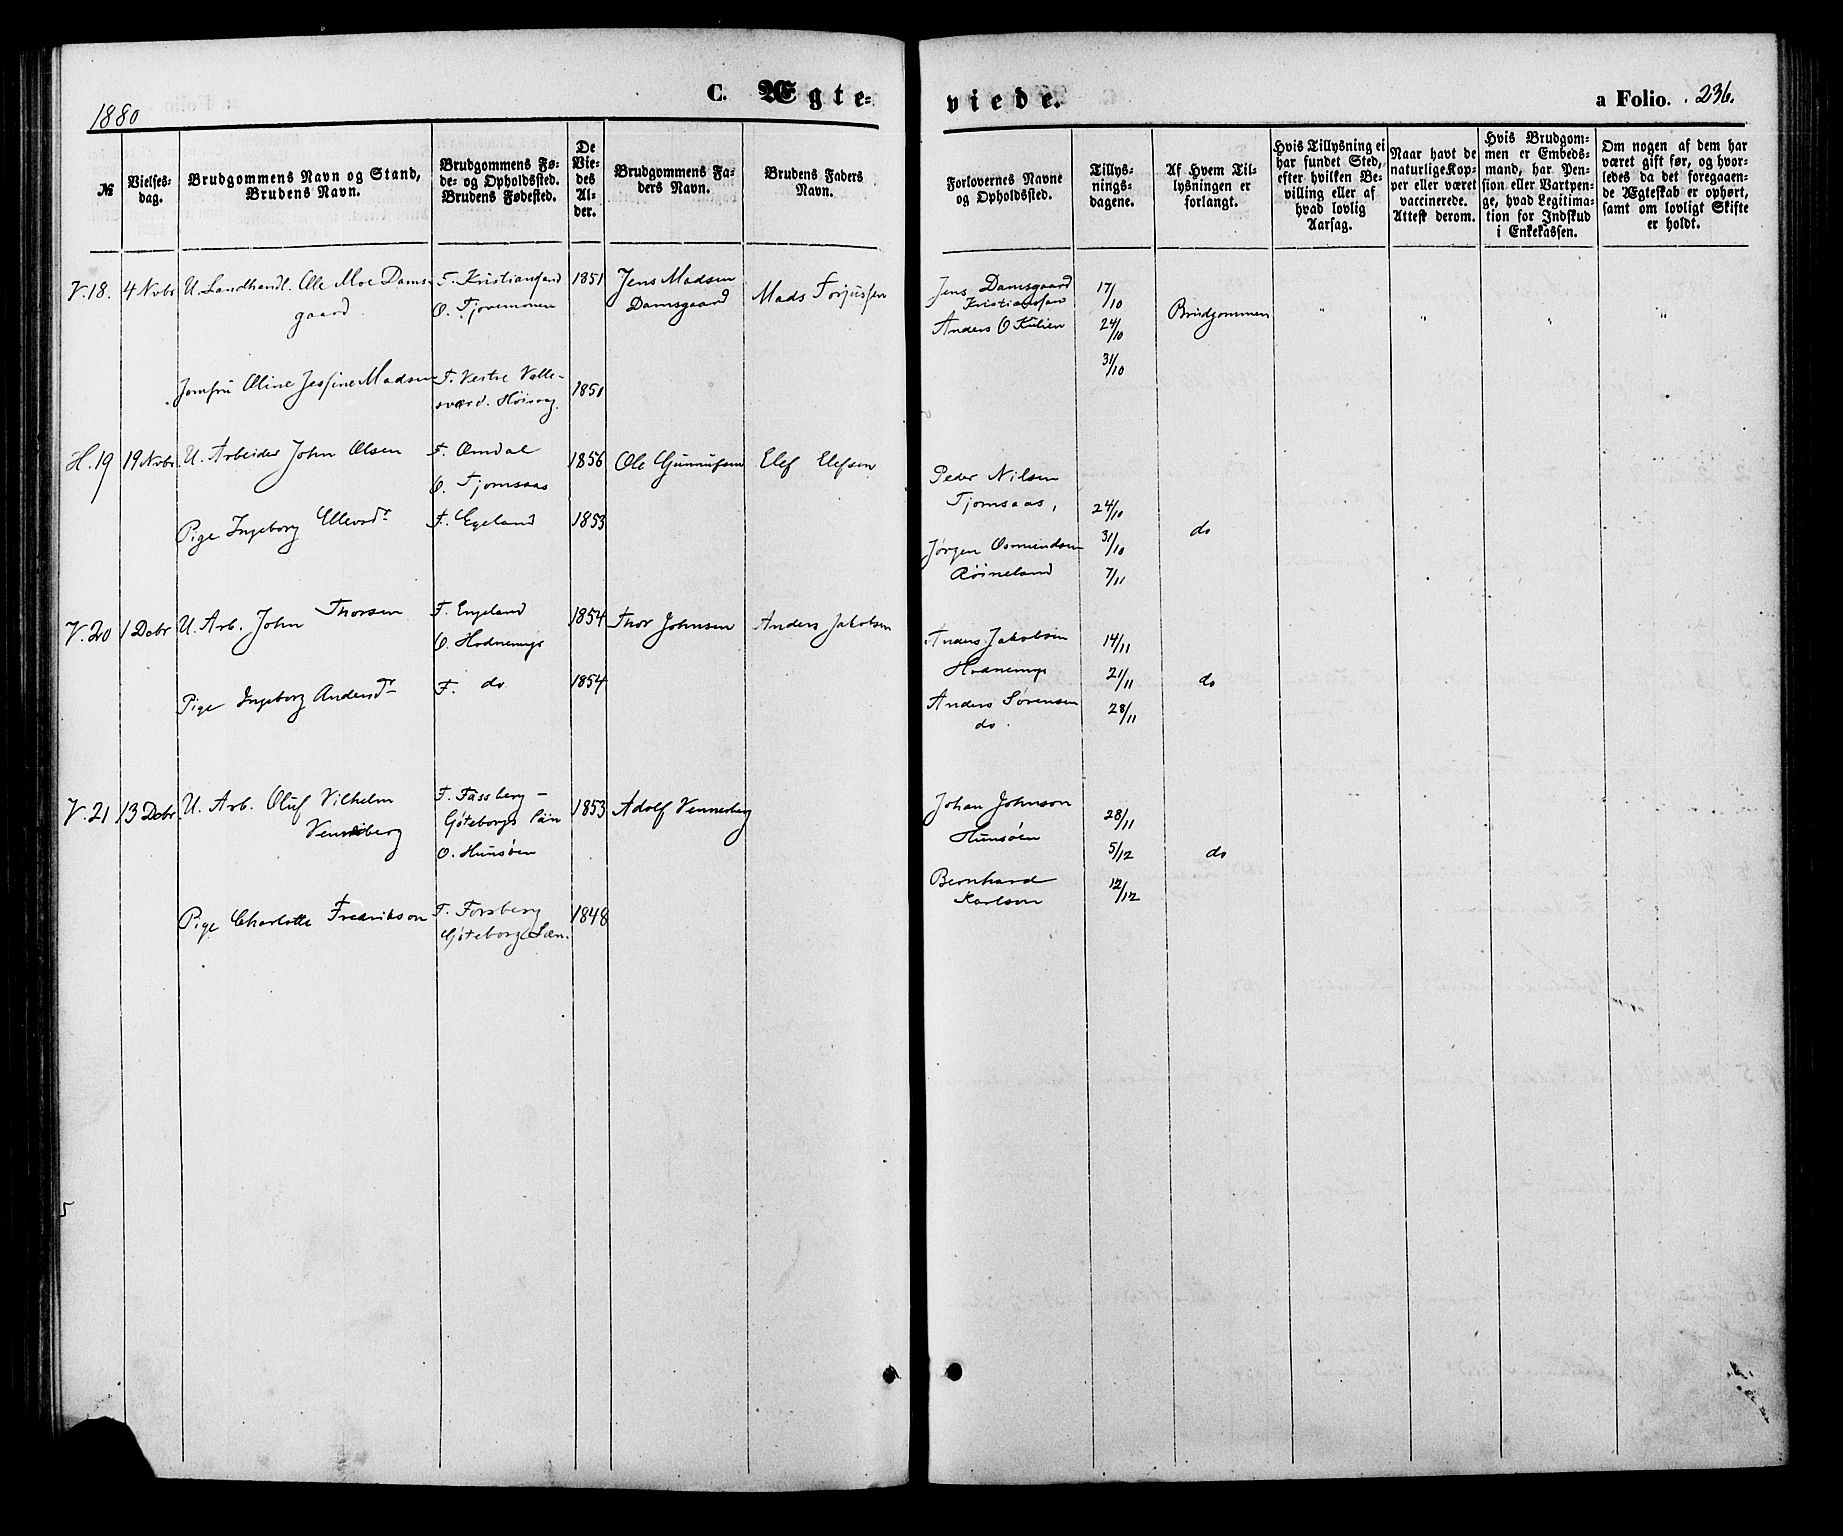 1880
C. Ægte-
№
Vielses-
dag.
Brudgommens Navn og Stand,
Brudens Navn.
Brudgommens Fø-
de- og Opholdssted.
Brudens Fødested.
De
Vie-
des
Al-
der.
Brudgommens Fa-
ders Navn.
Brudens Faders
Navn.
V. 18. 4 Novbr U. Landhandl. Ole Moe Dams-
gaard
F. Kristiansand
O. Tjovemoen
1851
Jens Madsen
Damsgaard
Mads Torjussen
Jomfru Oline Jessine Madsen
F. Vestre Valle-
sværd. Høivaag.
1850
H. 19 19 Novbr. U. Arbeider John Olsen
F. Omdal
O. Tjomsaas
1856
Ole Gunnufsen
Elef Elefsen
Pige Ingeborg Ellevsdr
F. Egeland
1853
V. 20 1 Decbr U. Arb. John Thorsen
F. Engeland
O. Hodnemyr
1854
Thor Johnsen
Anders Jakobsen
Pige Ingeborg Andersdr
F. do
1854
V. 21 13 Decbr. U. Arb. Oluf Vilhelm
Venneberg
F. Fassberg -
Göteborgs Län
O. Hunsøen
1853
Adolf Venneberg
Pige Charlotte Fredrikson
F. Forsberg
Göteborgs Læn.
1848
viede.
a Folio. 236.
Forlovernes Navne
og Opholdssted.
Tillys-
nings-
dagene.
Af Hvem Til-
lysningen er
forlangt.
Hvis Tillysning ei
har fundet Sted,
efter hvilken Be-
villing eller af
hvad lovlig
Aarsag.
Naar havt de
naturlige Kop-
per eller været
vaccinerede.
Attest derom.
Hvis Brudgom-
men er Embeds-
mand, har Pen-
sion eller Vartpen-
ge, hvad Legitima-
tion for Indskud
i Enkekassen.
Om nogen af dem har
været gift før, og hvor-
ledes da det foregaaen-
de Ægteskab er ophørt,
samt om lovligt Skifte
er holdt.
Jens Damsgaard
Kristianssan
Anders O Kulien
17/10
24/10
31/10
Brudgommen
" " " "
Peder Nilsen
Tjomsaas,
Jørgen Osmundsen
Røineland
24/10
31/10
7/11
do
Anders Jakobsen
Hodnemyr
Anders Sørensen
do.
14/11
21/11
28/11
do
Johan Johnson
Hunsøen
Bernhard
Karlson
28/11
5/12
12/12
do